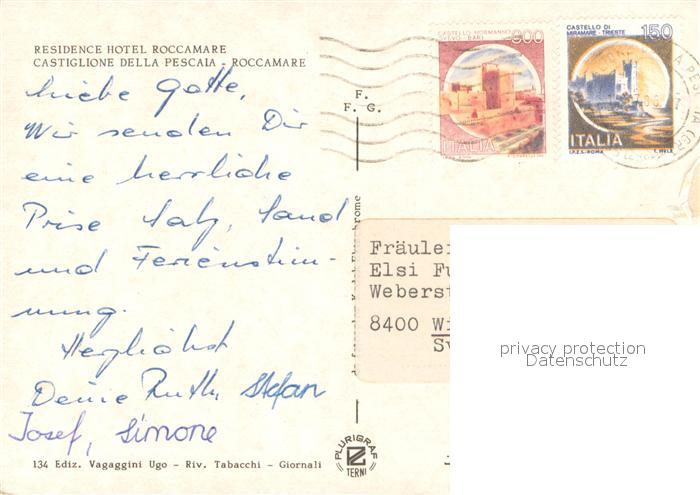 RESIDENCE HOTEL ROCCAMARE
CASTIGLIONE DELLA PESCAIA - ROCCAMARE
Liebe Gotte,
Wir senden Dir
eine herrliche
Prise Salz, Sand
und Ferienstim-
mung.
Herzlichst
Deine Ruth, Stefan
Josef, Simone
134 Ediz. Vagaggini Ugo - Riv. Tabacchi - Giornali
F.
F. G.
PLURIGRAF
TERNI
CASTELLO NORMANNO
SVEVO - BARI
ITALIA
CASTELLO DI
MIRAMARE - TRIESTE
150
ITALIA
I.P.Z.S. - ROMA
Fräulei
Elsi Fu
Weberst
8400 Wi
privacy protection
Datenschutz